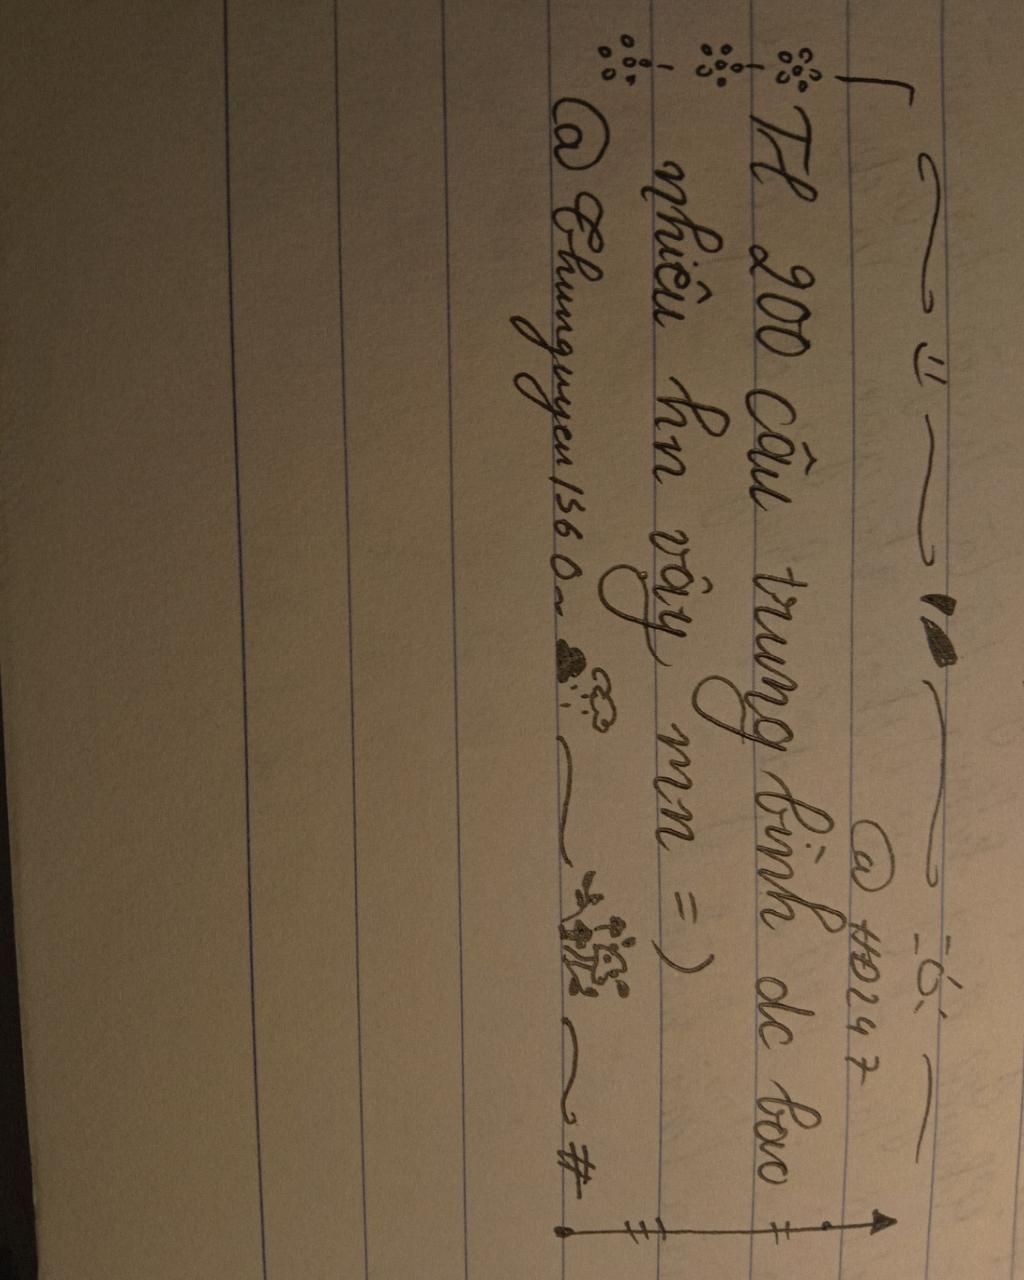 @HĐ247
TL 200 câu trung bình dc bao
nhiêu hn vây mn =)
@Thungnuyen1560~
#